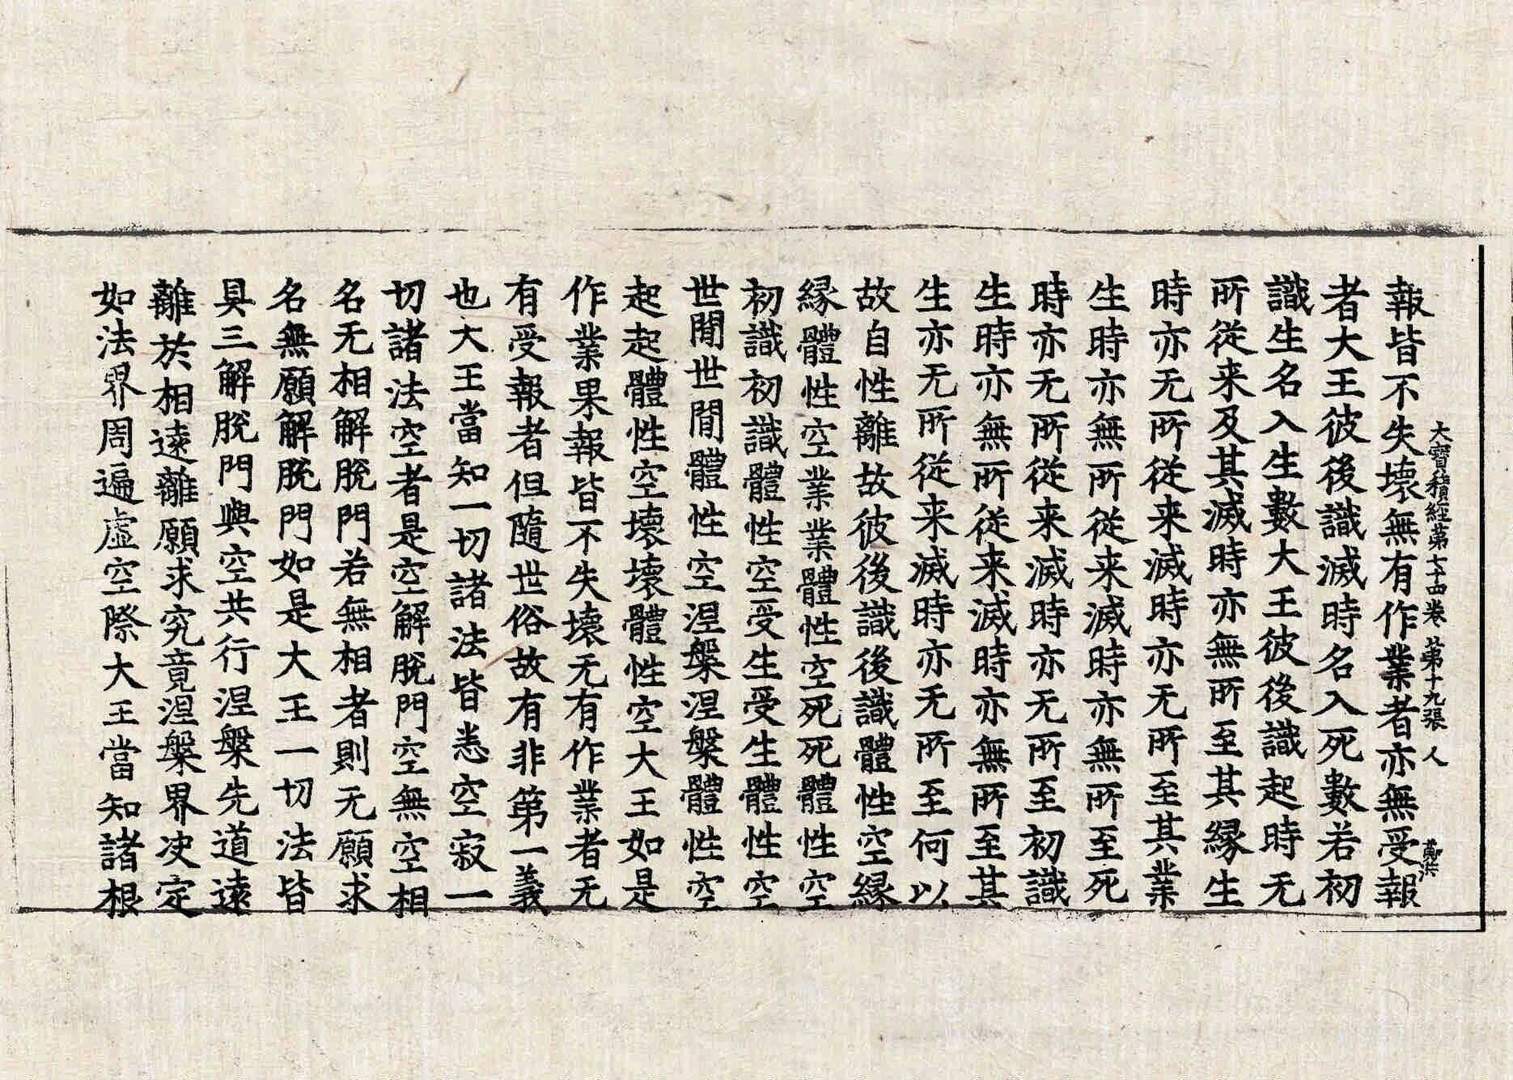 大寶積經第七十四卷 第十九張 人
報皆不失壞無有作業者亦無受報
者大王彼後識滅時名入死數若初
識生名入生數大王彼後識起時无
所從来及其滅時亦無所至其緣生
時亦无所從来滅時亦无所至其業
生時亦無所從来滅時亦無所至死
時亦无所從来滅時亦无所至初識
生時亦無所從来滅時亦無所至其
生亦无所從来滅時亦无所至何以
故自性離故彼後識後識體性空緣
緣體性空業業體性空死死體性空
初識初識體性空受生受生體性空
世閒世閒體性空涅槃涅槃體性空
起起體性空壞壞體性空大王如是
作業果報皆不失壞无有作業者无
有受報者但隨世俗故有非第一義
也大王當知一切諸法皆悉空寂一
切諸法空者是空解脫門空無空相
名无相解脫門若無相者則无願求
名無願解脫門如是大王一切法皆
具三解脫門與空共行涅槃先道遠
離於相遠離願求究竟涅槃界决定
如法界周遍虛空際大王當知諸根